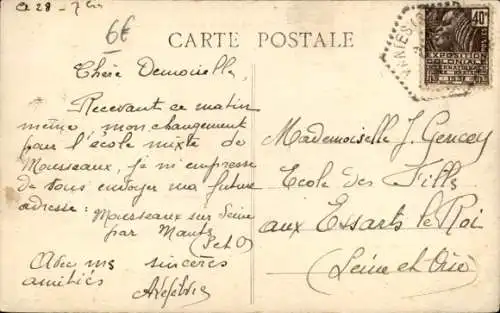 6€
CARTE POSTALE
40c
EXPOSITION
COLONIALE
INTERNATIONALE
PARIS 1931
Chère Demoiselle,
Recevant ce matin
même, mon changement
pour l'école mixte de
Mousseaux, je m'empresse
de vous envoyer ma future
adresse : Mousseaux sur Seine
par Mantes
(S et O)
Avec mes sincères
amitiés
ALefebvre
Mademoiselle J. Gencey
Ecole des Filles
aux Essarts le Roi
(Seine et Oise)